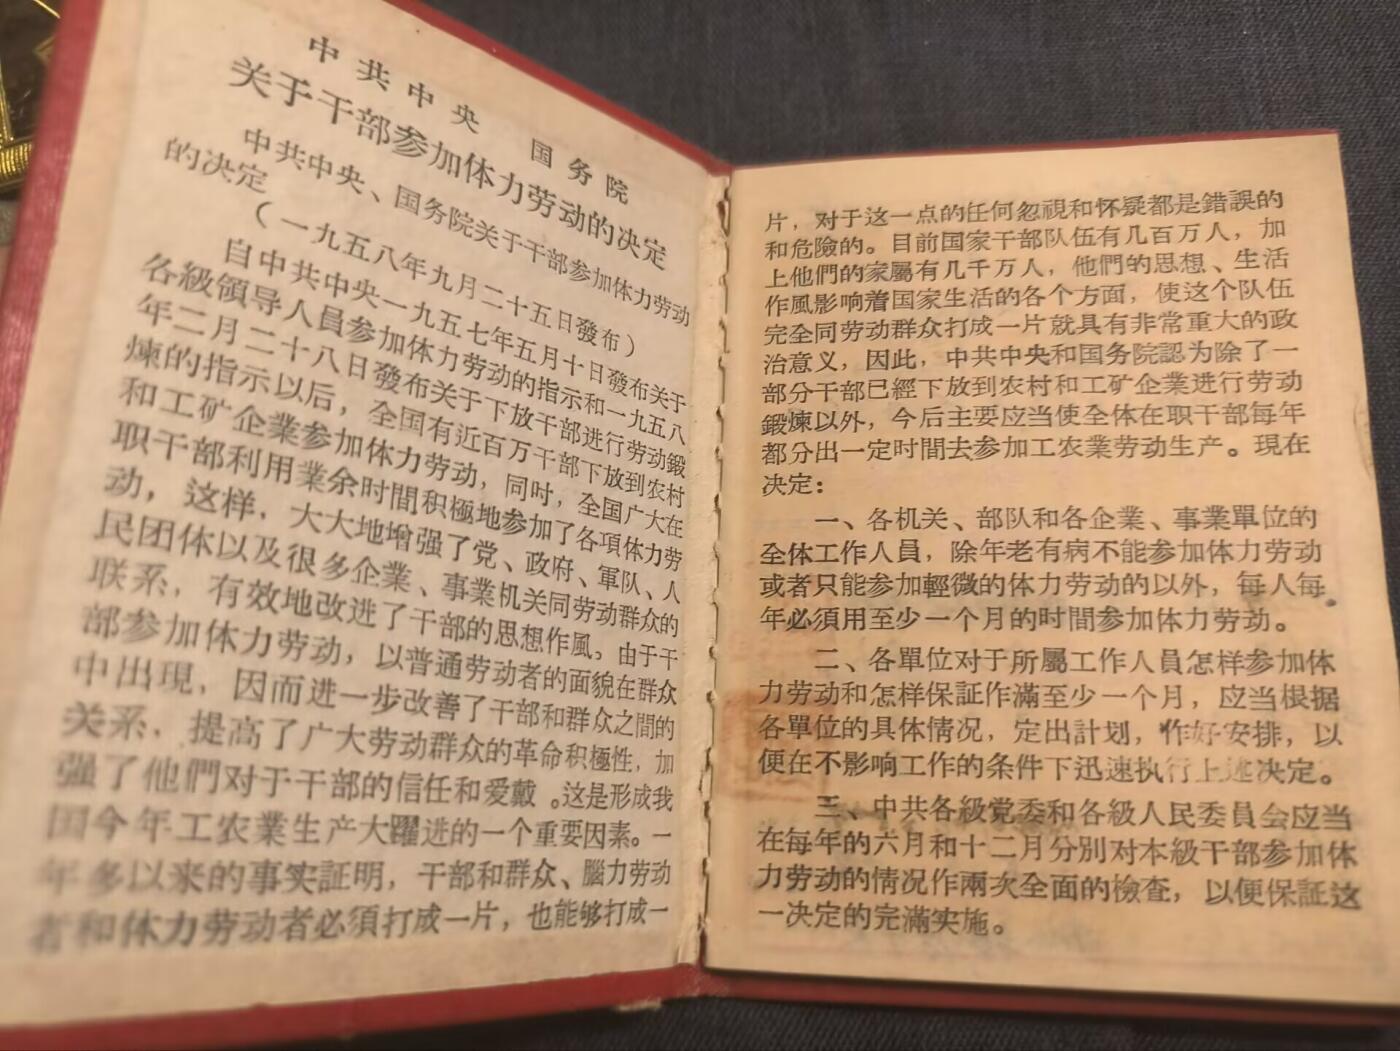 中共中央 国务院
关于干部参加体力劳动的决定
中共中央、国务院关于干部参加体力劳动
的决定
(一九五八年九月二十五日發布)
自中共中央一九五七年五月十日發布关于
各級領导人員参加体力劳动的指示和一九五八
年二月二十八日發布关于下放干部进行劳动鍛
煉的指示以后，全国有近百万干部下放到农村
和工矿企業参加体力劳动，同时，全国广大在
职干部利用業余时間积極地参加了各項体力劳
动，这样，大大地增强了党、政府、軍队、人
民团体以及很多企業、事業机关同劳动群众的
联系，有效地改进了干部的思想作風。由于干
部参加体力劳动，以普通劳动者的面貌在群众
中出現，因而进一步改善了干部和群众之間的
关系，提高了广大劳动群众的革命积極性，加
强了他們对于干部的信任和爱戴。这是形成我
国今年工农業生产大躍进的一个重要因素。一
年多以来的事实証明，干部和群众、腦力劳动
者和体力劳动者必須打成一片，也能够打成一
片，对于这一点的任何忽視和怀疑都是錯誤的
和危險的。目前国家干部队伍有几百万人，加
上他們的家屬有几千万人，他們的思想、生活
作風影响着国家生活的各个方面，使这个队伍
完全同劳动群众打成一片就具有非常重大的政
治意义，因此，中共中央和国务院認为除了一
部分干部已經下放到农村和工矿企業进行劳动
鍛煉以外，今后主要应当使全体在职干部每年
都分出一定时間去参加工农業劳动生产。現在
决定：
一、各机关、部队和各企業、事業單位的
全体工作人員，除年老有病不能参加体力劳动
或者只能参加輕微的体力劳动的以外，每人每
年必須用至少一个月的时間参加体力劳动。
二、各單位对于所屬工作人員怎样参加体
力劳动和怎样保証作滿至少一个月，应当根据
各單位的具体情况，定出計划，作好安排，以
便在不影响工作的条件下迅速执行上述决定。
三、中共各級党委和各級人民委員会应当
在每年的六月和十二月分別对本級干部参加体
力劳动的情况作兩次全面的檢查，以便保証这
一决定的完滿实施。